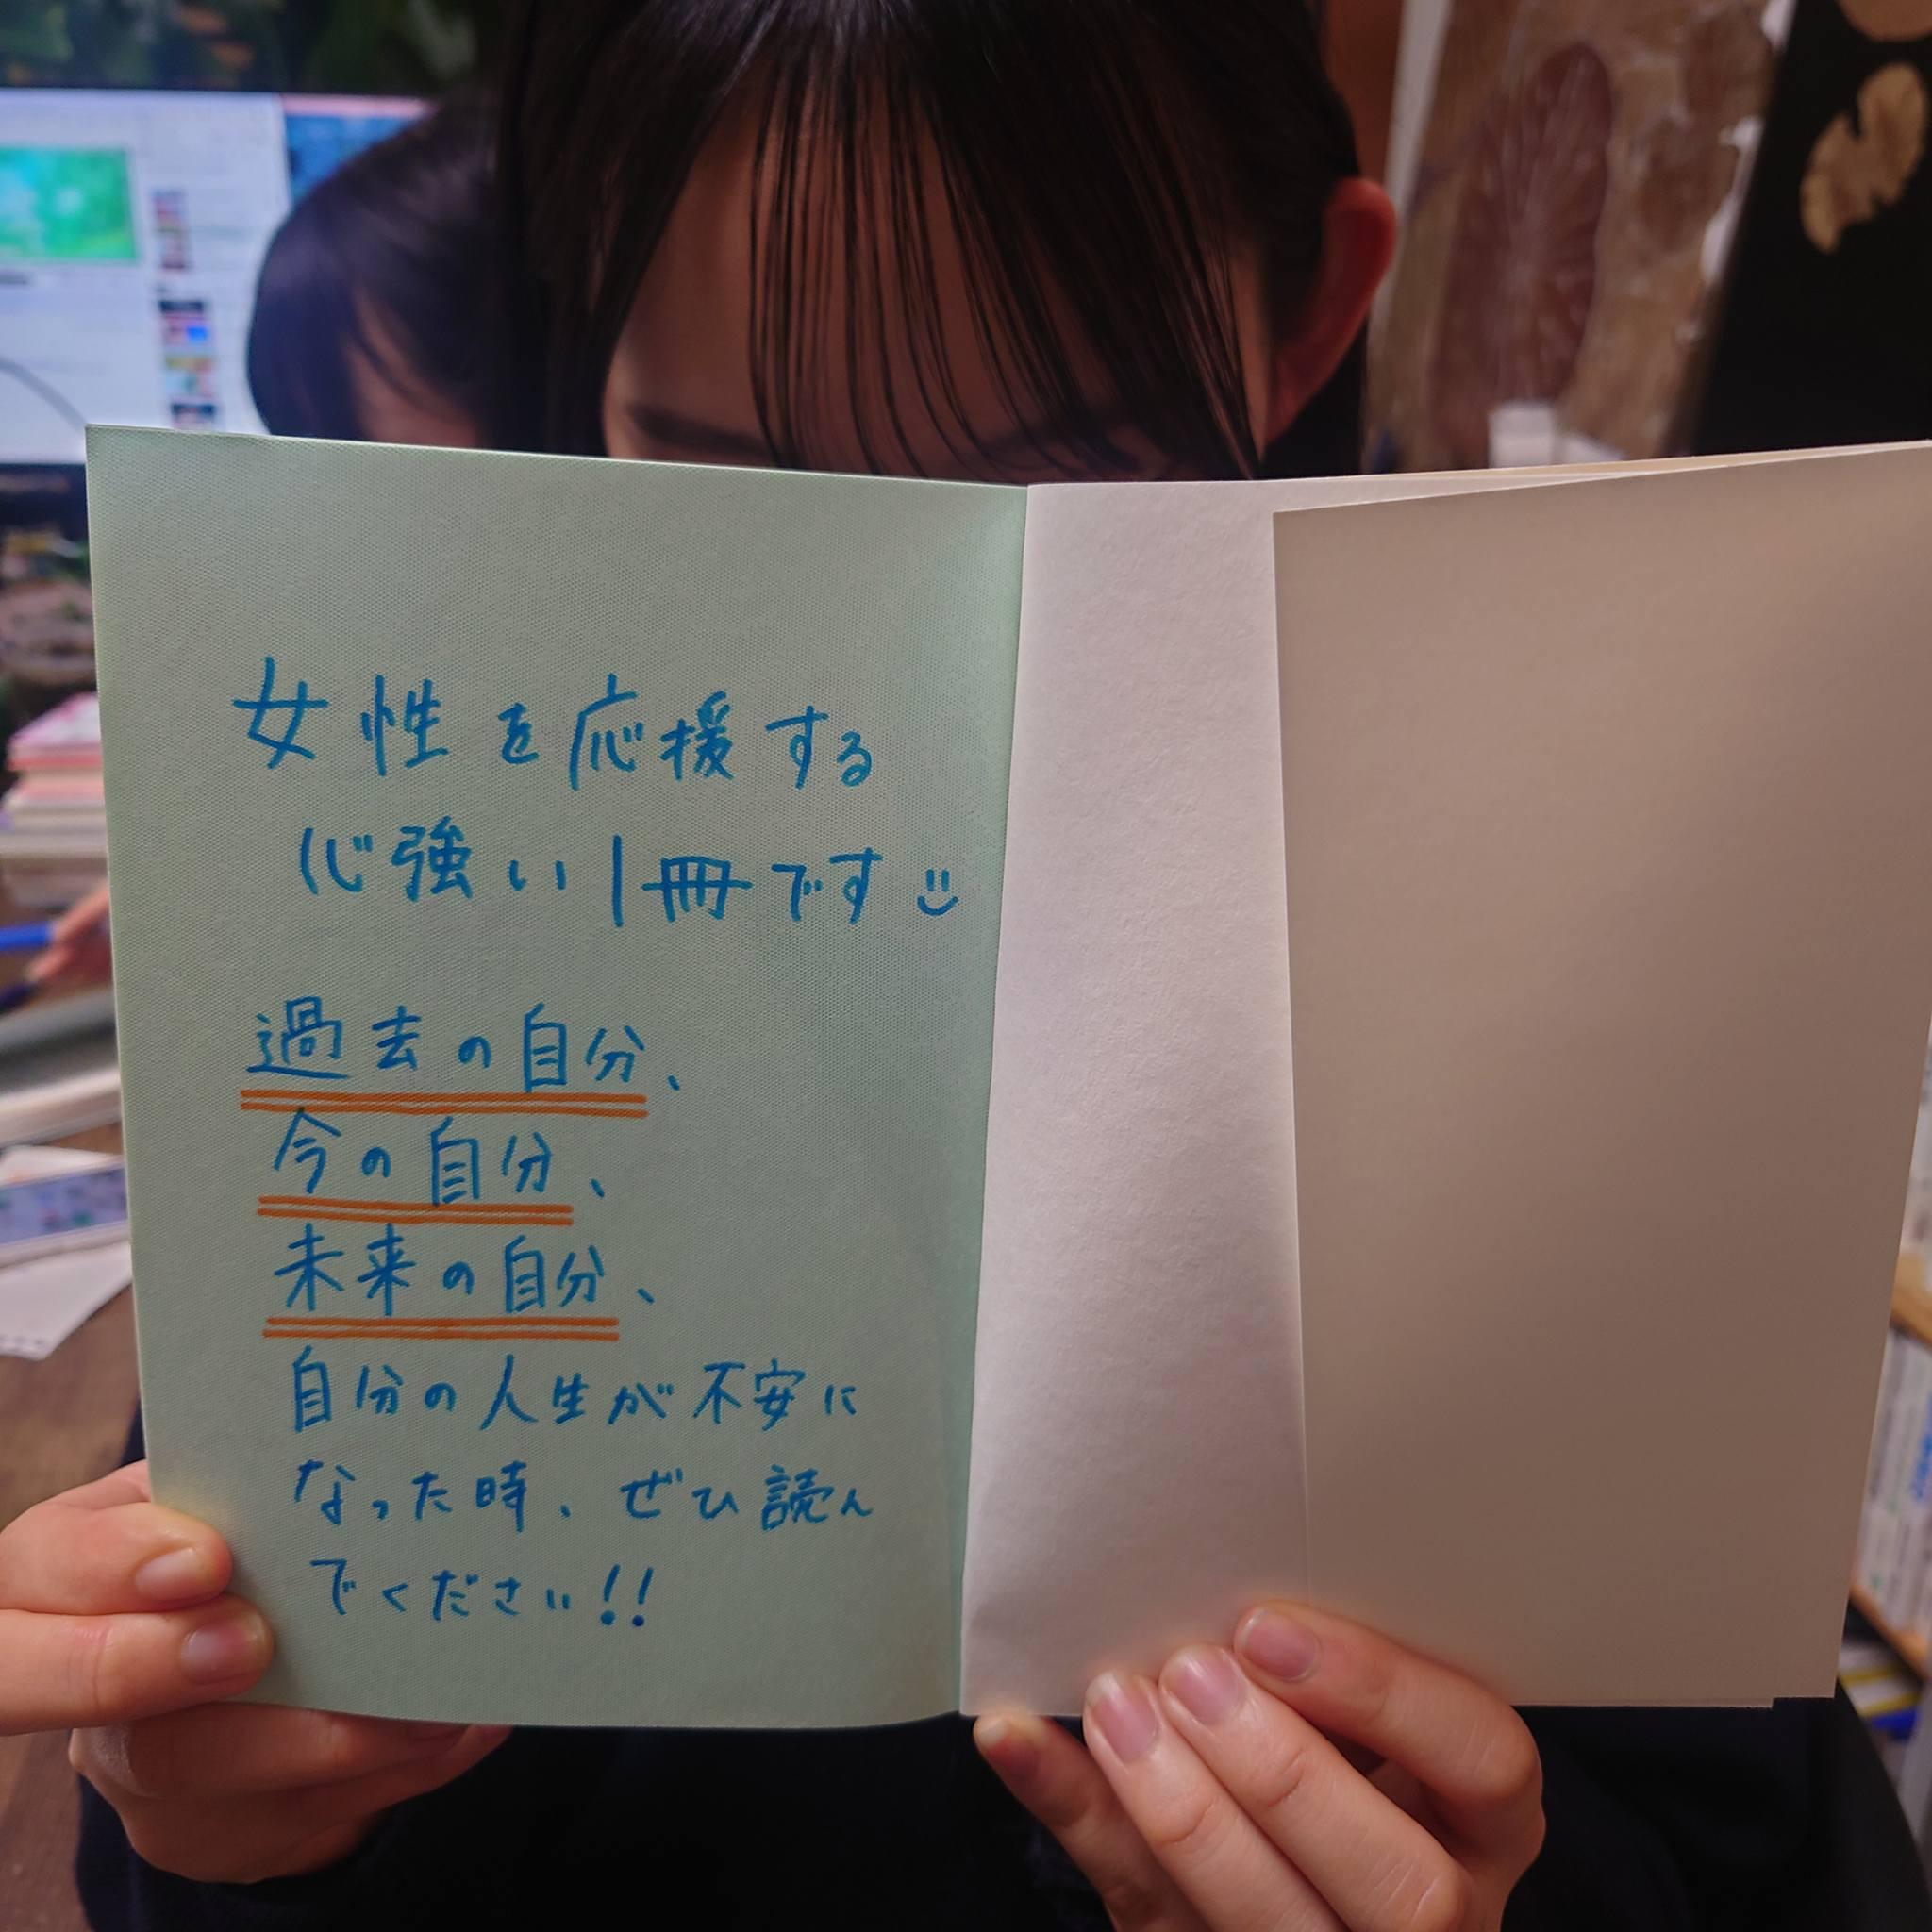 女性を応援する
心強い1冊です
過去の自分、
今の自分、
未来の自分、
自分の人生が不安に
なった時、ぜひ読ん
でください!!